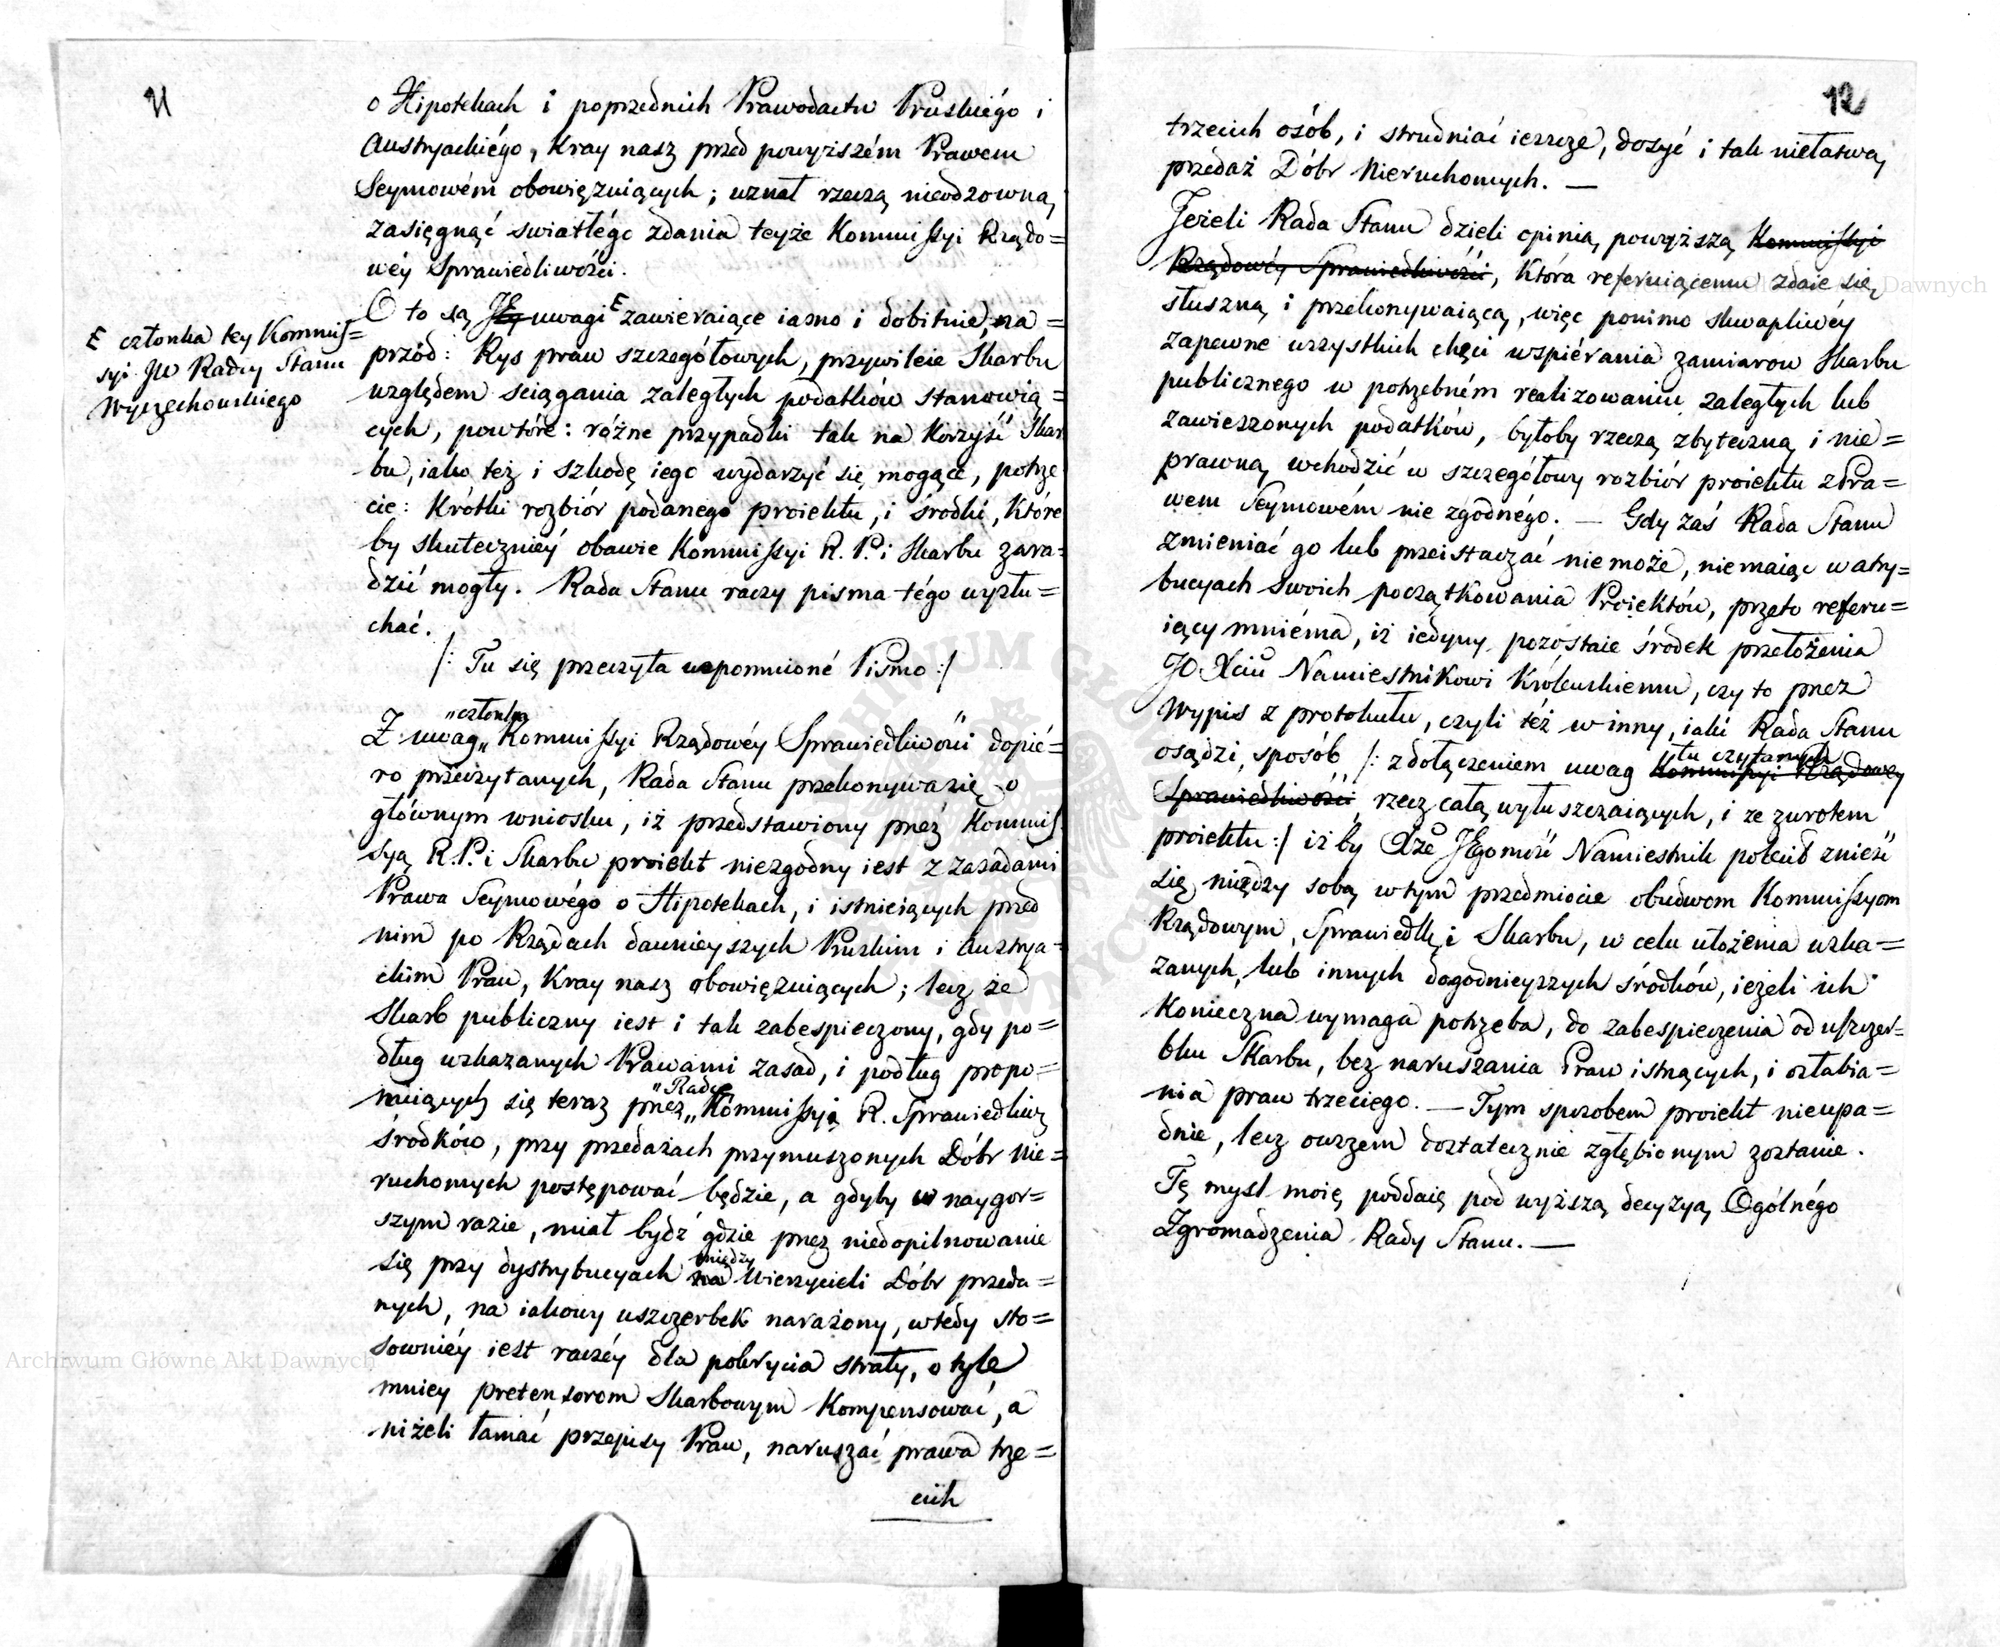 11
o Hipotekach i poprzednich Prawodactw Pruskiégo i
Austryackiégo, Kray nasz przed powyższém Prawem
Seymowém obowięzuiących; uznał rzeczą nieodzowną,
zasięgnąć swiatłégo zdania teyże Kommissyi Rządo=
wéy Sprawiedliwości.
O to są JEy uwagi E zawieraiące iasno i dobitnie, na=
przód: Rys praw szczegółowych, przywileie Skarbu
względem sciągania zaległych podatków stanowią=
cych, powtóre: różne przypadki tak na korzyść Skar
bu, iako też i szkodę iego wydarzyć się mogące, potrze
cie: Krótki rozbiór podanego proiektu, i środki, Które
by skuteczniéy obawie Kommissyi R. P. i Skarbu zara=
dzić mogły. Rada Stanu raczy pisma tégo wysłu=
chać.
/: Tu się przeczyta wspomnioné Pismo :/
E członka tey Kommis=
syi JW Radcy Stanu
Wyczechowskiego
"członka
Z uwag„ Kommissyi Rządowéy Sprawiedliwości dopié=
ro przeczytanych, Rada Stanu przekonywa się o
głównym wniosku, iż przedstawiony przez Kommis
syą R. P. i Skarbu proiekt niezgodny iest z zasadami
Prawa Seymowégo o Hipotekach, i istnieiących przed
nim po Rządach dawnieyszych Pruskim i Austrya=
ckim Praw, Kray nasz obowięzuiących; lecz że
Skarb publiczny iest i tak zabespieczony, gdy po=
dług wskazanych Prawami zasad, i podług propo=
"Radcę
nuiących się teraz przez„ Kommissyią R. Sprawiedliw
środków, przy przedażach przymuszonych Dóbr Nie=
ruchomych postępować będzie, a gdyby w naygor=
szym razie, miał bydź gdzie przez niedopilnowanie
między
się przy dystrybucyach na Wierzycieli Dóbr przeda=
nych, na iakowy uszczerbek narażony, wtedy sto=
sowniéy iest raczéy dla pokrycia straty, o tyle
mniey pretensorom Skarbowym Kompensować, a
niżeli łamać przepisy Praw, naruszać prawa trze=
cich
12
trzecich osób, i strudniać ieszcze, dosyć i tak niełatwą
przedaż Dóbr Nieruchomych. —
Jeżeli Rada Stanu dzieli opinią powyższą Kommissyi
Rządowéy Sprawiedliwości, Która referuiącemu zdaie się
słuszną i przekonywaiącą, więc pomimo skwapliwéy
zapewne wszystkich chęci wspiérania zamiarow Skarbu
publicznego w potrzebném realizowaniu zaległych lub
zawieszonych podatków, byłoby rzeczą zbyteczną i nie=
prawną wchodzić w szczegółowy rozbiór proiektu z Pra=
wem Seymowém nie zgodnégo. — Gdy zaś Rada Stanu
zmieniać go lub przeistaczać niemoże, niemaiąc w atry=
bucyach swoich początkowania Proiektów, przeto referu=
iący mniéma, iż iedyny pozostaie środek przełożenia
JO Xciu Namiestnikowi Królewskiemu, czy to przez
Wypis z protokułu, czyli też w inny, iaki Rada Stanu
osądzi, sposób /: z dołączeniem uwag Kommissyi Rządowey
tu czytanych
Sprawiedliwości rzecz całą wyłuszczaiących, i ze zwrotem
proiektu :/ iż by Xże JEgomość Namiestnik polecił znieść
się między sobą w tym przedmiocie obudwom Kommissyom
Rządowym, Sprawiedl: i Skarbu, w celu ułożenia wska=
zanych, lub innych dogodnieyszych środków, ieżeli ich
Konieczna wymaga potrzeba, do zabespieczenia od uszczer=
bku Skarbu, bez naruszania Praw istnących, i osłabia=
nia praw trzeciego. — Tym sposobem proiekt nieupa=
dnie, lecz owszem dostatecznie zgłębionym zostanie.
Tę mysl moię poddaię pod wyższą decyzyą Ogólnégo
Zgromadzenia Rady Stanu. —
Archiwum Główne Akt Dawnych